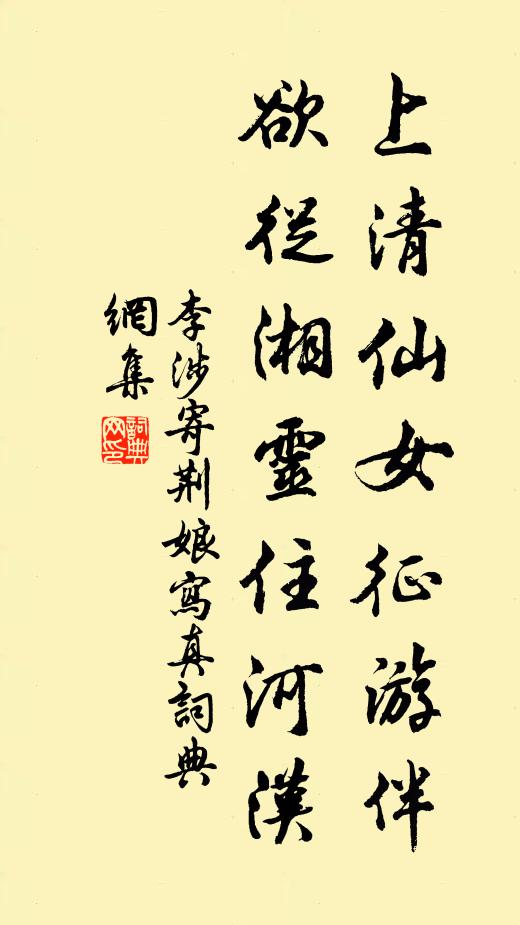 上清仙女征游伴
欲從湘靈住河漢
李涉寄荆娘寫真詞典
網集
詞典网印